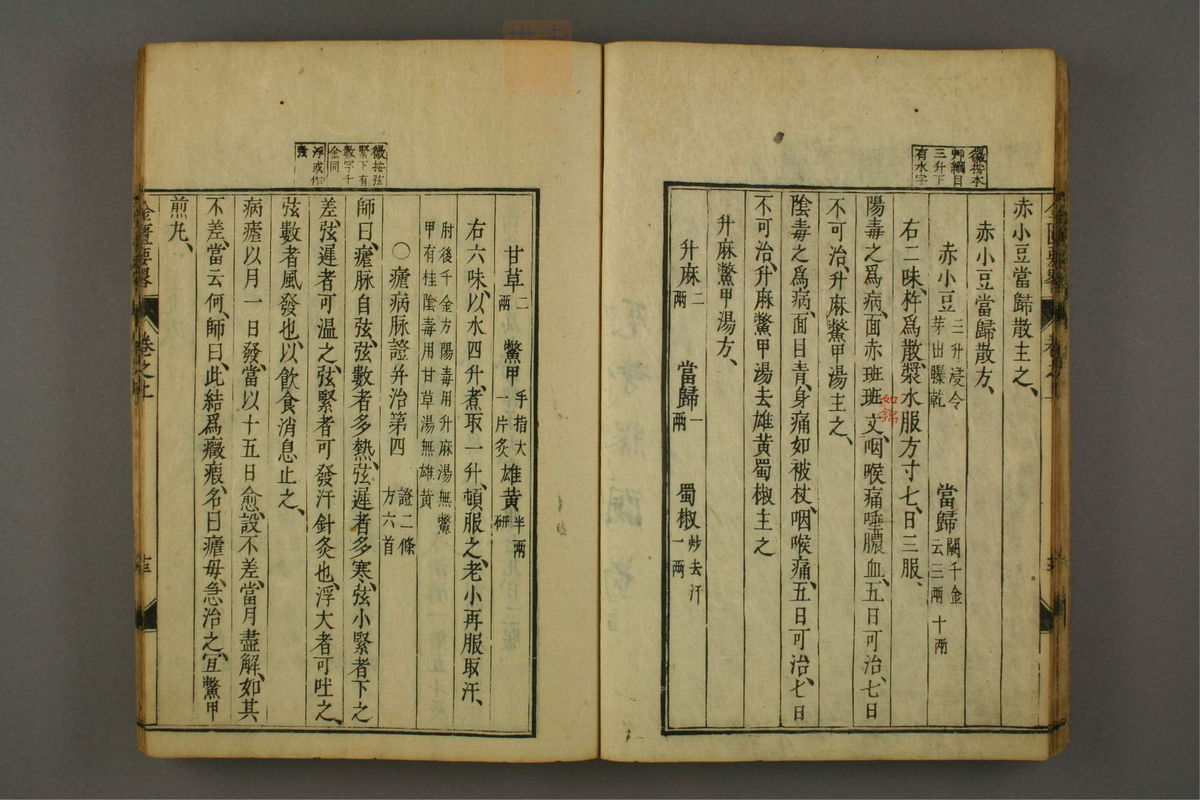 徵按本
艸綱目
三升下
有水字
赤小豆當歸散主之、
赤小豆當歸散方、
赤小豆三升浸令芽出曝乾 當歸闕千金云三兩 十兩
右二味、杵爲散、漿水服方寸七、日三服、
陽毒之爲病、面赤班班文、咽喉痛唾膿血、五日可治、七日
如錦
不可治、升麻鱉甲湯主之、
陰毒之爲病、面目青、身痛如被杖、咽喉痛、五日可治、七日
不可治、升麻鱉甲湯去雄黃蜀椒主之
升麻鱉甲湯方、
升麻二兩 當歸一兩 蜀椒炒去汗一兩
金匱要畧 卷之上
徵按弦
緊下有
數字千
金同
浮或作
甘草二兩 鱉甲手指大一片炙 雄黃半兩研
右六味、以水四升、煮取一升、頓服之、老小再服取汗、
肘後千金方陽毒用升麻湯無鱉
甲有桂陰毒用甘草湯無雄黃
○瘧病脉證幷治第四 證二條方六首
師曰、瘧脉自弦、弦數者多熱、弦遲者多寒、弦小緊者下之
差、弦遲者可温之、弦緊者可發汗針灸也、浮大者可吐之、
弦數者風發也、以飲食消息止之、
病瘧以月一日發、當以十五日愈、設不差、當月盡解、如其
不差、當云何、師曰、此結爲癥瘕、名曰瘧母、急治之、宜鱉甲
煎丸、
金匱要畧 卷之上